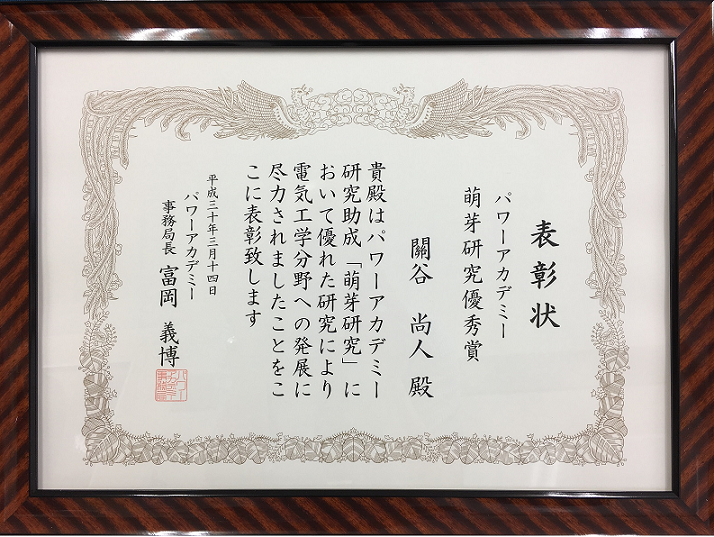 表彰状
パワーアカデミー
萌芽研究優秀賞
關谷 尚人 殿
貴殿はパワーアカデミー
研究助成「萌芽研究」に
おいて優れた研究により
電気工学分野への発展に
尽力されましたことをこ
こに表彰致します
平成三十年三月十四日
パワーアカデミー
事務局長 富岡 義博